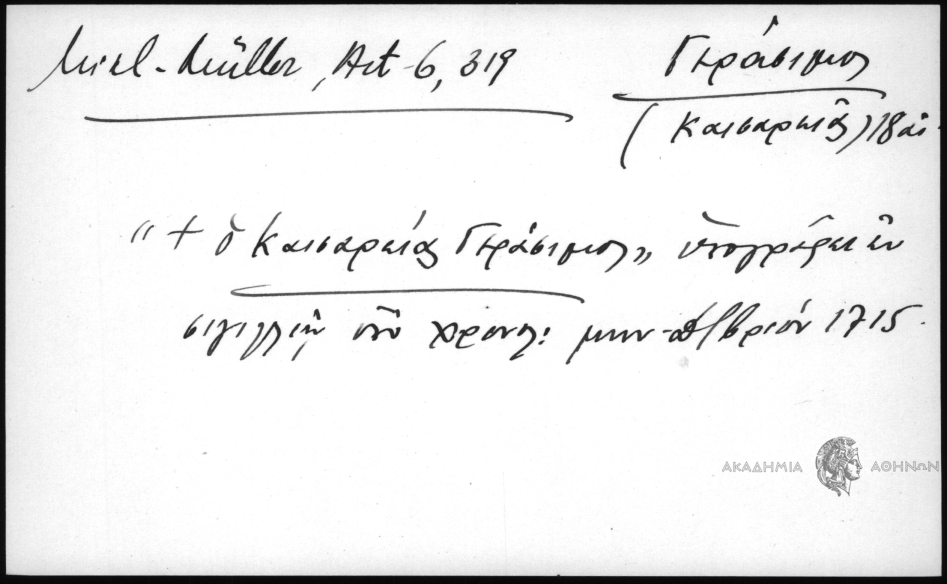 Mikl-Müller, Act 6, 319
Γεράσιμος
(Καισαρείας) 18 αἰ.
"+ ὁ Καισαρείας Γεράσιμος" ὑπογράφει ἐν
σιγιλλίῳ ὑπὸ χρονολ:
1715.
ΑΚΑΔΗΜΙΑ ΑΘΗΝΩΝ